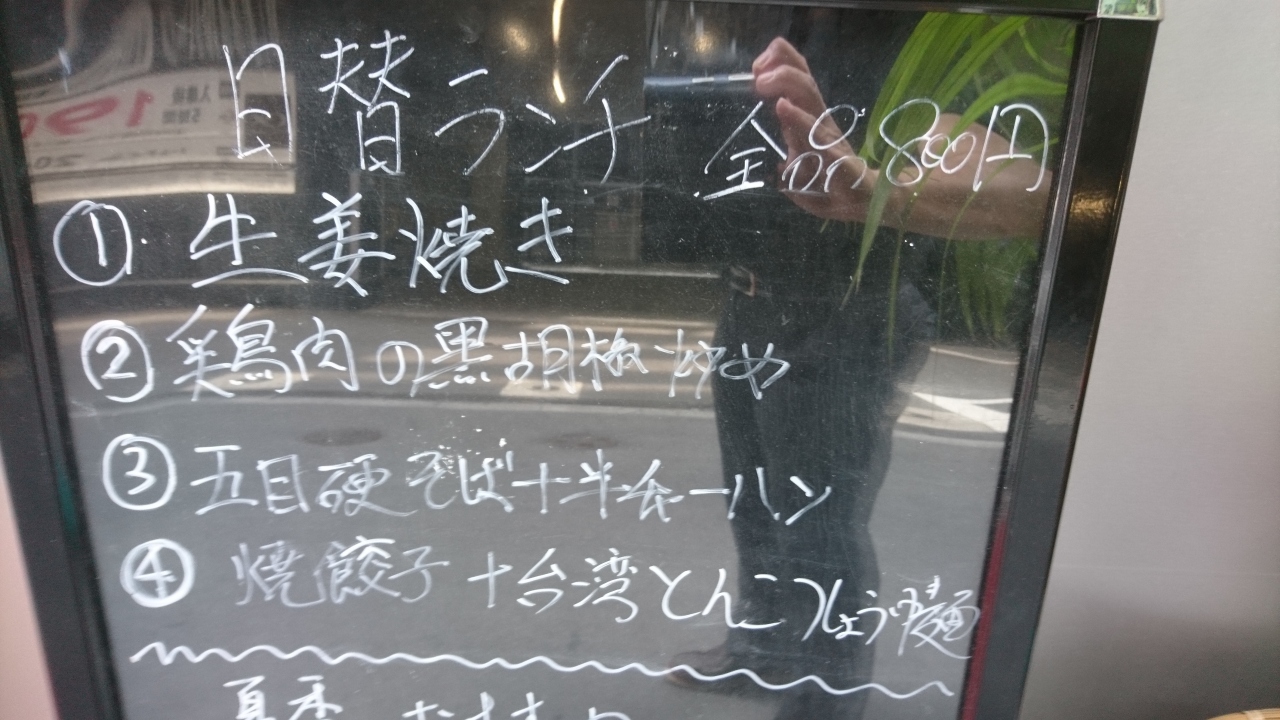 日替ランチ 全品800円
① 生姜焼き
② 鶏肉の黒胡椒炒め
③ 五目硬そば+半チャーハン
④ 焼餃子+台湾とんこつしょうゆ麺
夏季 おすすめ